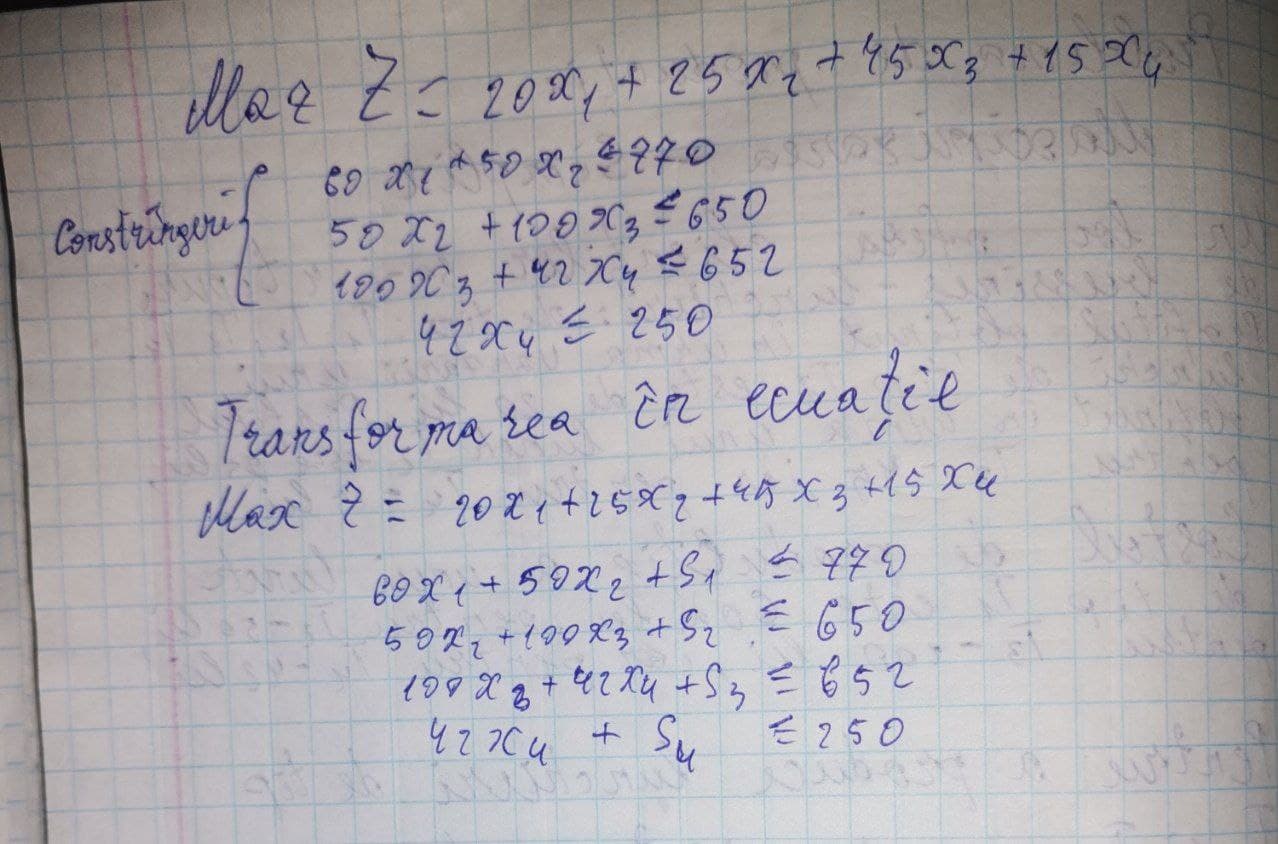 Max Z = 20x₁ + 25x₂ + 45x₃ + 15x₄
Constrîngeri { 60x₁ + 50x₂ ≤ 770
50x₂ + 100x₃ ≤ 650
100x₃ + 42x₄ ≤ 652
42x₄ ≤ 250
Transformarea în ecuație
Max Z = 20x₁ + 25x₂ + 45x₃ + 15x₄
60x₁ + 50x₂ + S₁ ≤ 770
50x₂ + 100x₃ + S₂ ≤ 650
100x₃ + 42x₄ + S₃ ≤ 652
42x₄ + S₄ ≤ 250